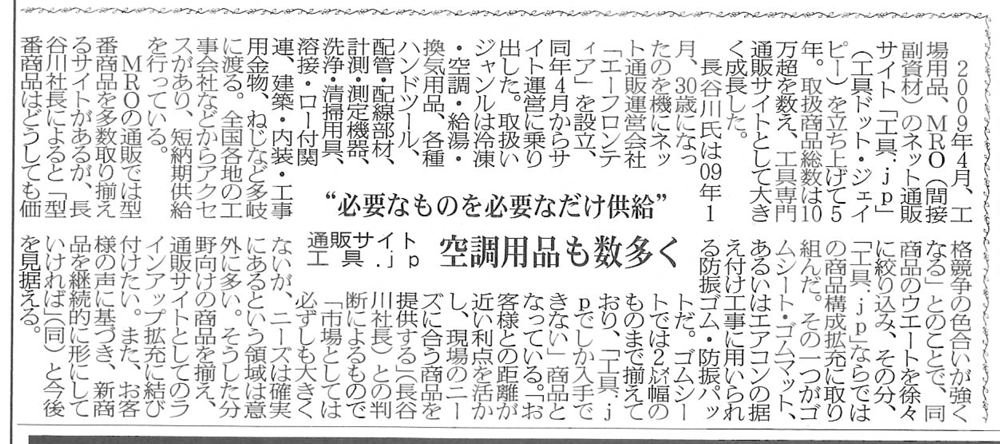 “必要なものを必要なだけ供給”
通販サイト
工具.jp
空調用品も数多く
２００９年４月、工
場用品、ＭＲＯ（間接
副資材）のネット通販
サイト「工具．ｊｐ」
（工具ドット・ジェイ
ピー）を立ち上げて５
年。取扱商品総数は10
万超を数え、工具専門
通販サイトとして大き
く成長した。
長谷川氏は09年１
月、30歳になっ
たのを機にネッ
ト通販運営会社
「エーフロンテ
ィア」を設立、
同年４月からサ
イト運営に乗り
出した。取扱い
ジャンルは冷凍
・空調・給湯・
換気用品、各種
ハンドツール、
配管・配線部材、
計測・測定機器、
洗浄・清掃用具、
溶接・ロー付関
連、建築・内装・工事
用金物、ねじなど多岐
に渡る。全国各地の工
事会社などからアクセ
スがあり、短納期供給
を行っている。
ＭＲＯの通販では型
番商品を多数取り揃え
るサイトがあるが、長
谷川社長によると「型
番商品はどうしても価
格競争の色合いが強く
なる」とのことで、同
商品のウエートを徐々
に絞り込み、その分、
「工具．ｊｐ」ならでは
の商品構成拡充に取り
組んだ。その一つがゴ
ムシート・ゴムマット、
あるいはエアコンの据
え付け工事に用いられ
る防振ゴム・防振パッ
トだ。ゴムシー
トでは２㍍幅の
ものまで揃えて
おり、「工具．ｊ
ｐでしか入手で
きない」商品と
なっている。「お
客様との距離が
近い利点を活か
し、現場のニー
ズに合う商品を
提供する」（長谷
川社長）との判
断によるもので
「市場としては
必ずしも大きく
ないが、ニーズは確実
にあるという領域は意
外に多い。そうした分
野向けの商品を揃え、
通販サイトとしてのラ
インアップ拡充に結び
付けたい。また、お客
様の声に基づき、新商
品を継続的に形にして
いければ」（同）と今後
を見据える。